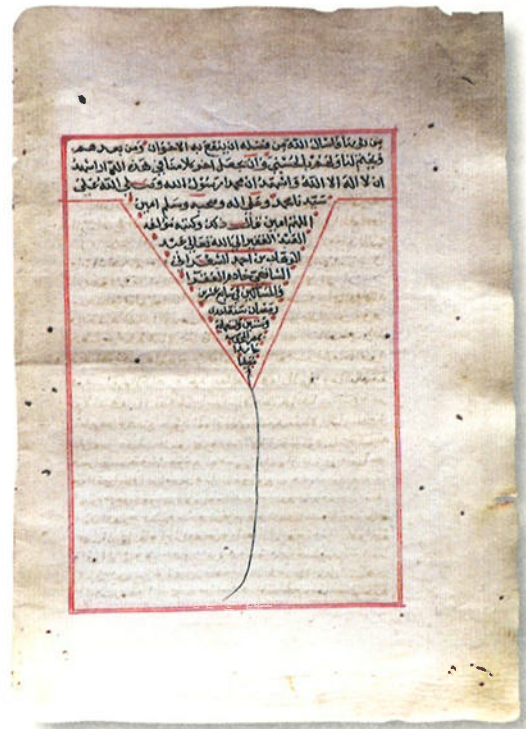 من ذنوبنا واسال الله من فضله ان ينفع به الاخوان ومن بعدهم
ويختم لنا ولاخو بالحسنى وان يجعل اخر كلامنا في هذه الدار اشهد
ان لا اله الا الله واشهد ان محمدا رسول الله وصلى الله على
سيدنا محمد وعلى اله وصحبه وسلم امين
اللهم امين قال ذلك وكتبه مؤلفه
العبد الفقير الى الله تعالى عبد
الوهاب بن احمد الشعراني
الشافعي خادم الفقرا
والمساكين في سابع عشرين
رمضان سنة
وستين وتسعماية
بمصر